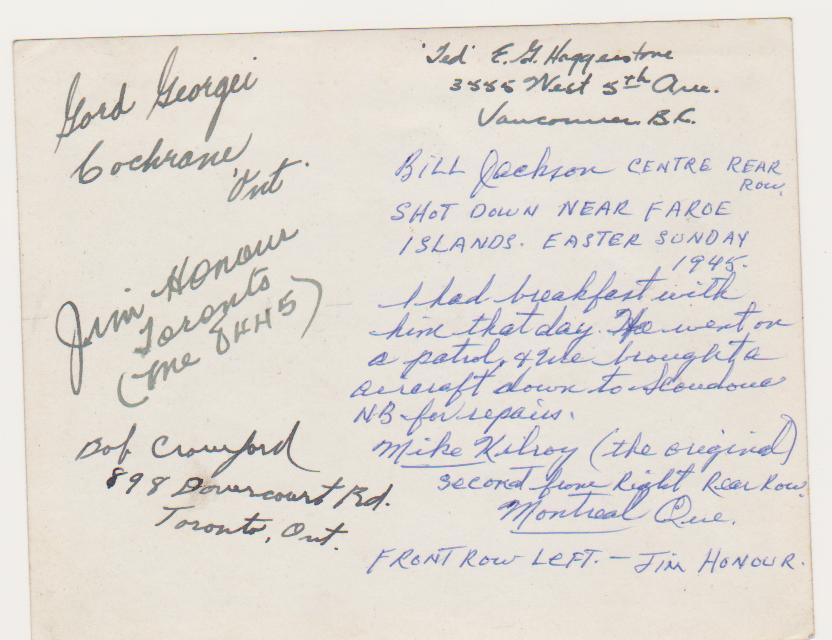 Gord Georgei
Cochrane
Ont.
Jim Honour
Toronto
(me
Bob Crawford
898 Dovercourt Rd.
Toronto, Ont.
'Ted' E. G. Haggerstone
3555 West 5th Ave.
Vancouver. B.C.
BILL Jackson CENTRE REAR
ROW.
SHOT DOWN NEAR FAROE
ISLANDS. EASTER SUNDAY
1945.
I had breakfast with
him that day. He went on
a patrol, & We brought a
aircraft down to Scoudouc
NB for repairs.
Mike Kilroy (the original)
second from Right Rear Row.
Montreal Que.
FRONT ROW LEFT. - JIM HONOUR.